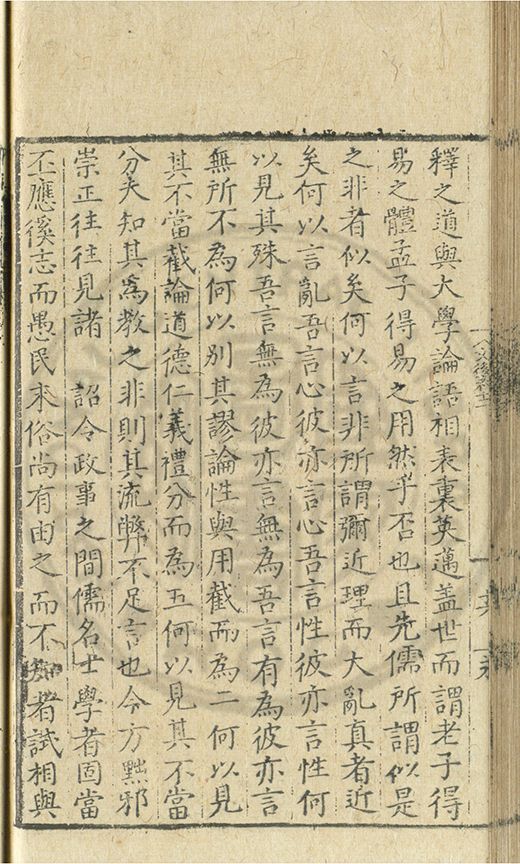 釋之道與大學論語相表裏英邁盖世而謂老子得
易之體孟子得易之用然乎否也且先儒所謂似是
之非者似矣何以言非所謂彌近理而大亂真者近
矣何以言亂吾言心彼亦言心吾言性彼亦言性何
以見其殊吾言無為彼亦言無為吾言有為彼亦言
無所不為何以別其謬論性與用截而為二何以見
其不當截論道德仁義禮分而為五何以見其不當
分夫知其為教之非則其流弊不足言也今方黜邪
崇正往往見諸 詔令政事之間儒名士學者固當
丕應徯志而愚民末俗尚有由之而不知者試相與